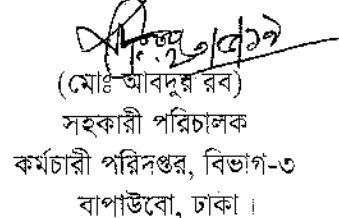 ২০/৫/১৯
(মোঃ আবদুর রব)
সহকারী পরিচালক
কর্মচারী পরিদপ্তর, বিভাগ-৩
বাপাউবো, ঢাকা ।